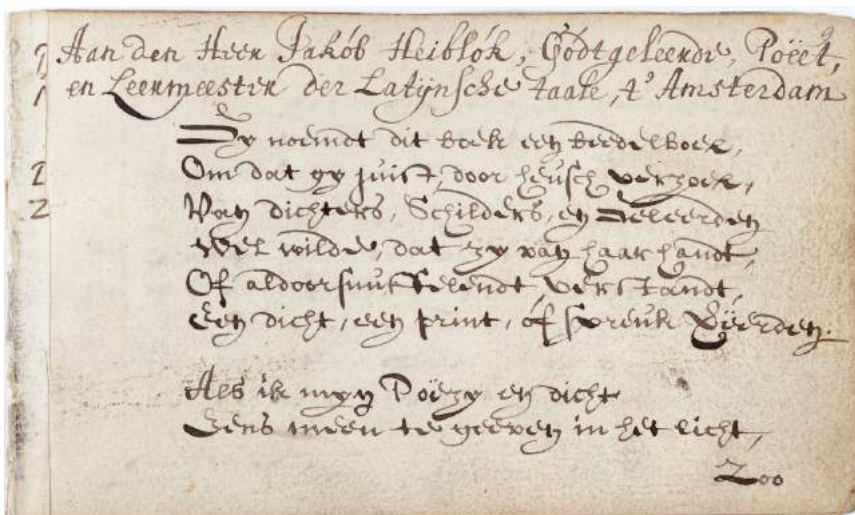 9
Aan den Heer Jakób Heiblók, Gódtgeleerde, Poëet,
en Leermeester der Latÿnsche taale, t' Amsterdam
Gy noemdt dit boek een beedelboek,
Om dat gy juist, door heusch verzoek,
Van dichters, Schilders, en Geleerden
Wel wilde, dat zy van haar handt,
Of aldoorsnuffelendt verstandt,
Een dicht, een print, óf spreuk vëerden.
Als ik myn Poëzy en dicht
Eens meen te geeven in het licht,
Zoo